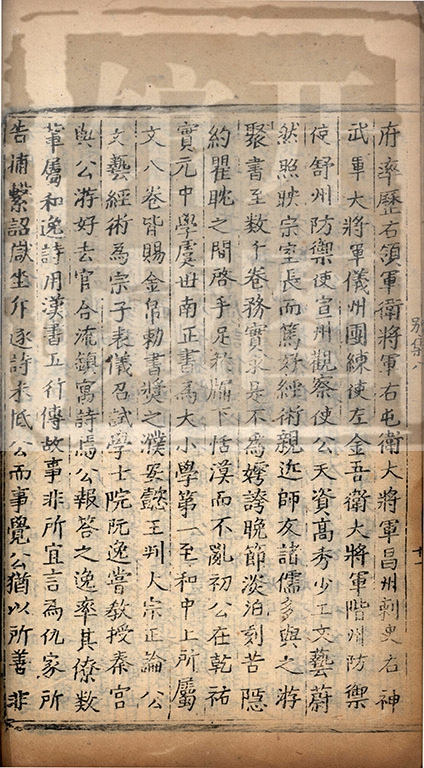 府率歷右領軍衛將軍右屯衛大將軍昌州刺史右神
武軍大將軍儀州團練使左金吾衛大將軍階州防禦
使舒州防禦使宣州觀察使公天資高秀少工文藝蔚
然照映宗室長而篤好經術親近師友諸儒多與之游
聚書至數千卷務實求是不為嫮誇晚節淡泊刻苦隱
約瞿耽之間啓手足於牖下恬漠而不亂初公在乾祐
寶元中學虞世南正書為大小學第一至和中上所屬
文八卷皆賜金帛勅書獎之濮安懿王判大宗正論公
文藝經術為宗子表儀召試學士院阮逸嘗教授秦宮
與公游好去官合流鎮寓詩焉公報答之逸率其僚數
輩屬和逸詩用漢書五行傳故事非所宜言為仇家所
告捕繫詔獄坐斥逐詩未抵公而事覺公猶以所善非
別集八
十二